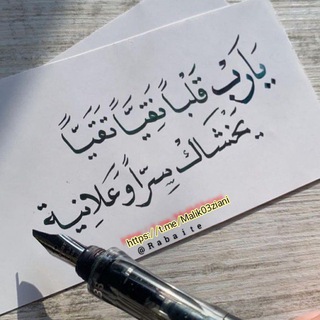 يَارَبّ قَلْبًا نَقِيًّا تَقِيًّا
يَخْشَاكَ سِرًّا وَعَلَانِيَة
https://t.me/Malik03ziani
@Rabaite